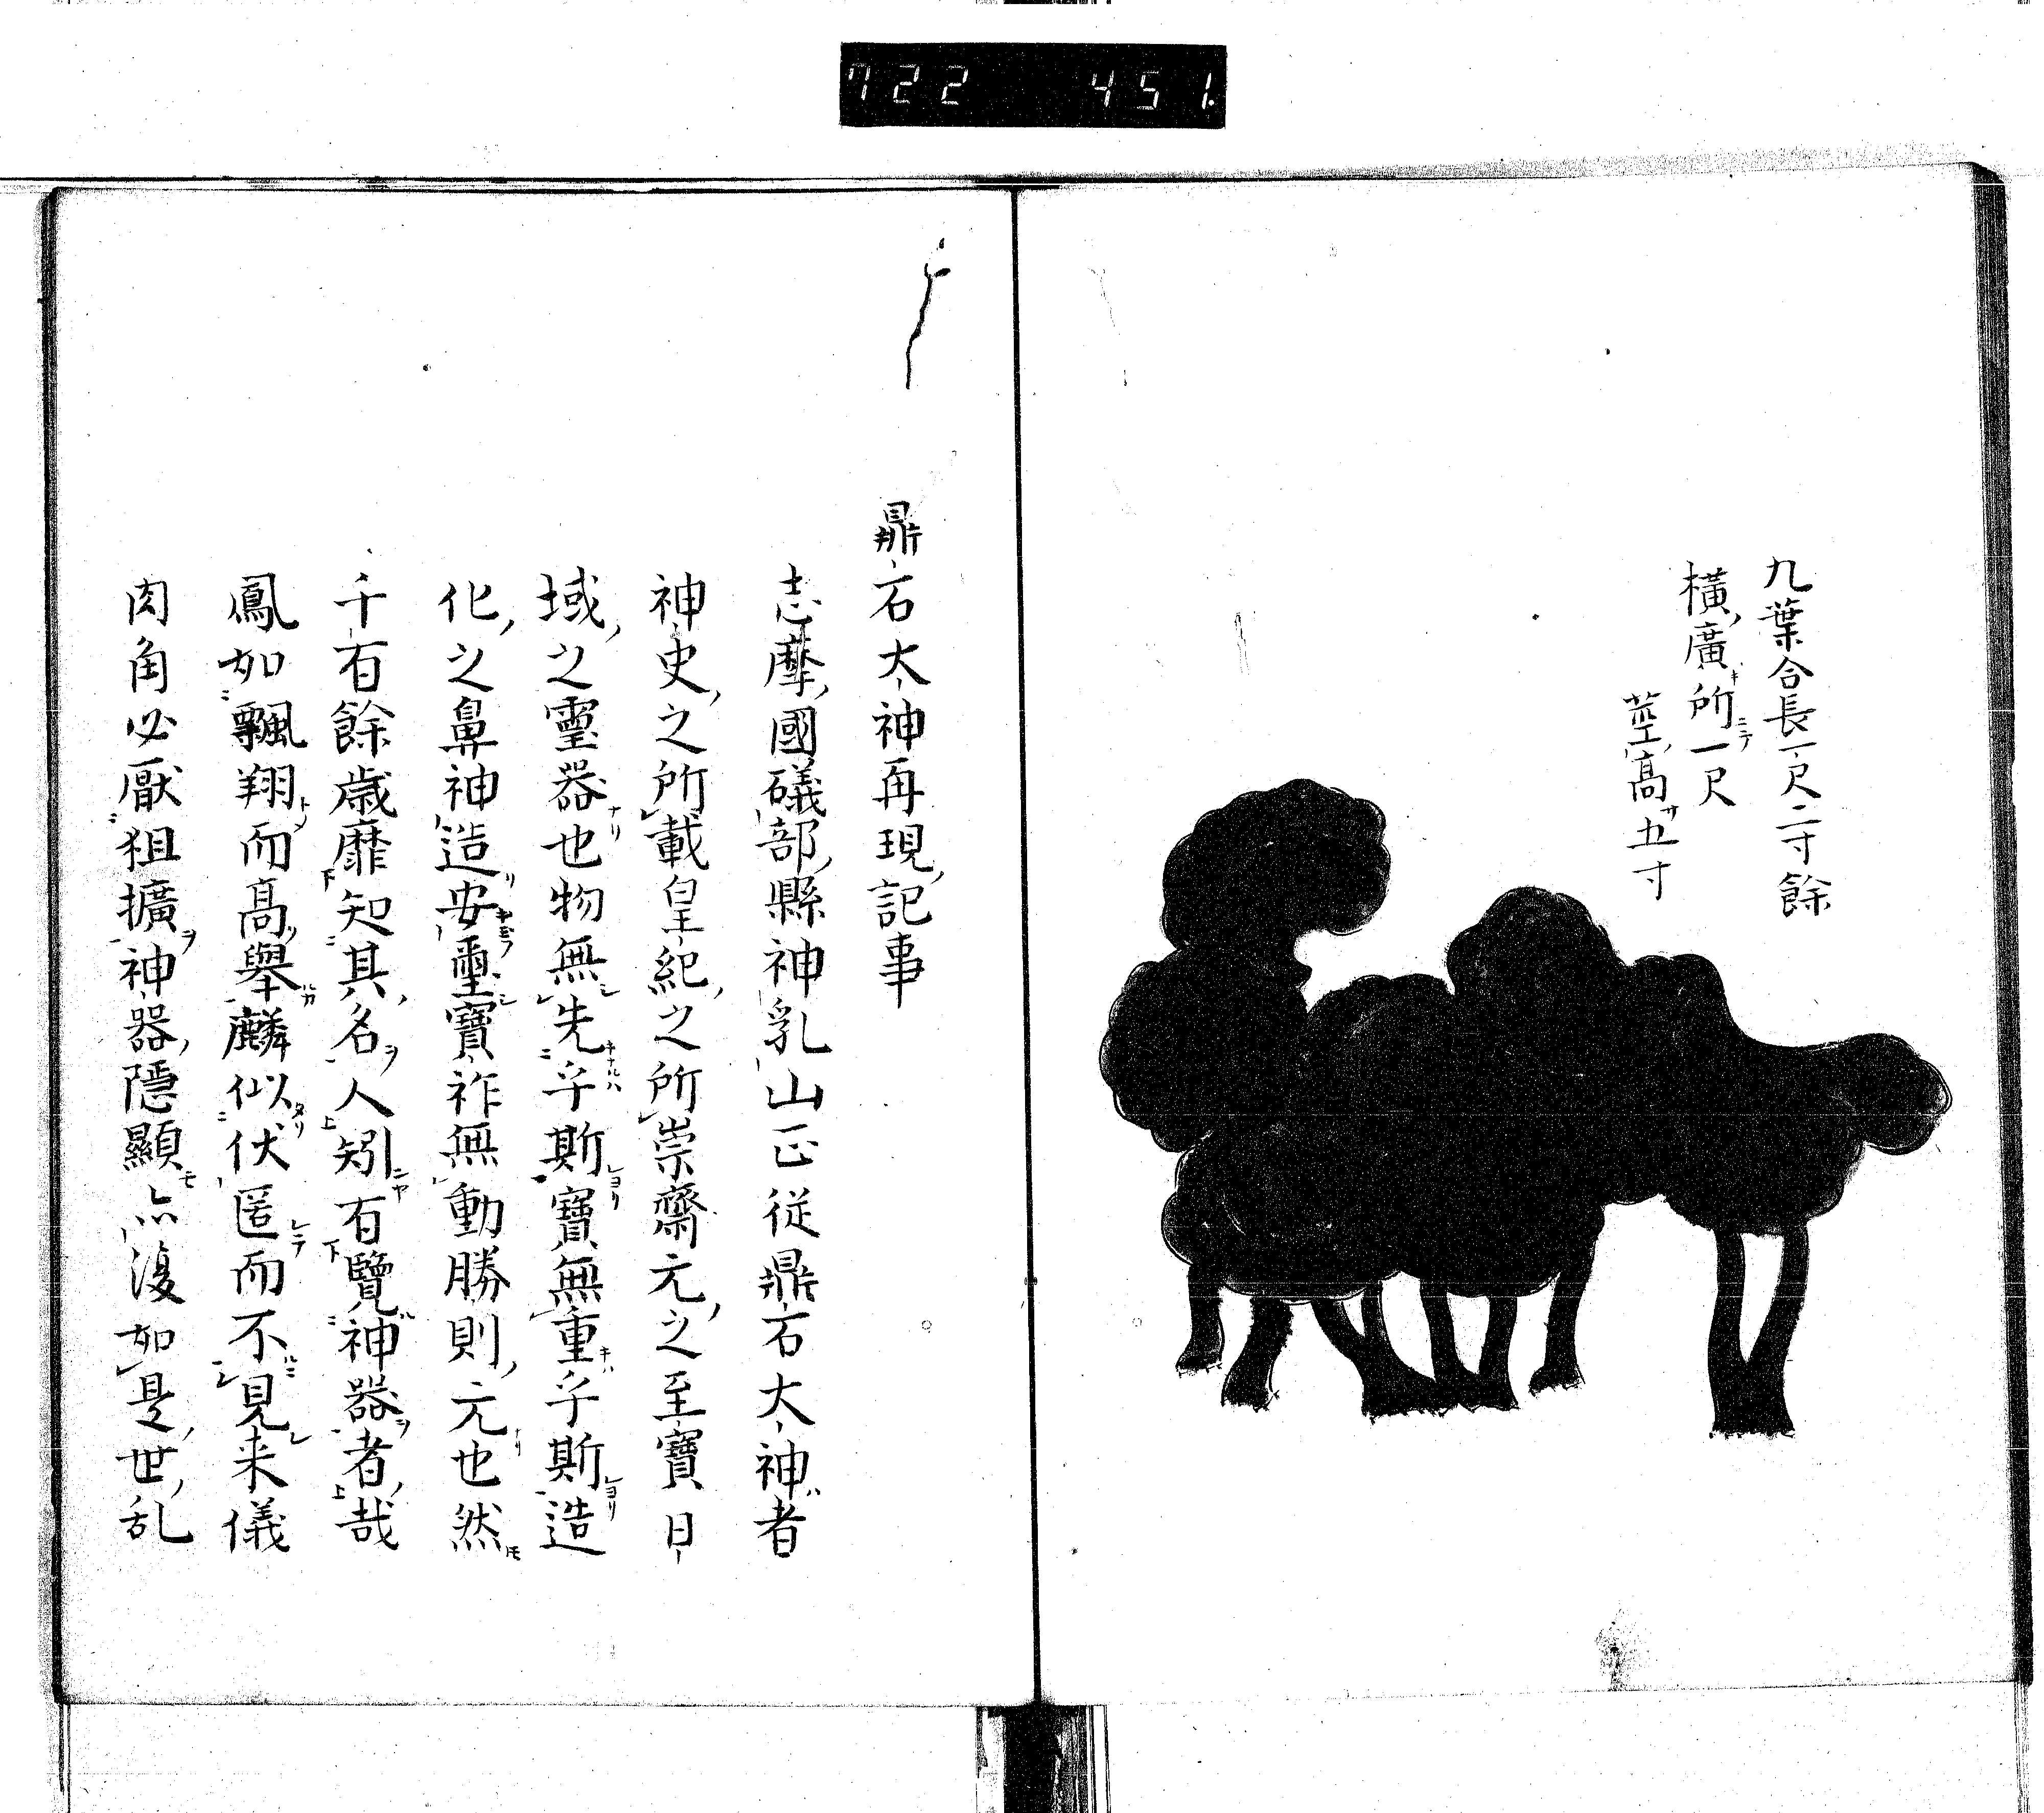 722 451
九葉合長一尺二寸餘
横廣キ所ニテ一尺
莖高サ五寸
鼎石大神再現記事
志摩國礒部縣神乳山正従鼎石大神ハ者
神史之所載皇紀之所崇齋元之至寶日
域之靈器也物無先乎斯寶無重乎斯造
化之鼻神造安璽寶祚無動勝則元也然
千有餘歳靡知其名人矧有覽神器者哉
鳳如飄翔而高舉麟似伏匿而不見来儀
肉角必厭狙擴神器隱顯亦復如是世乱